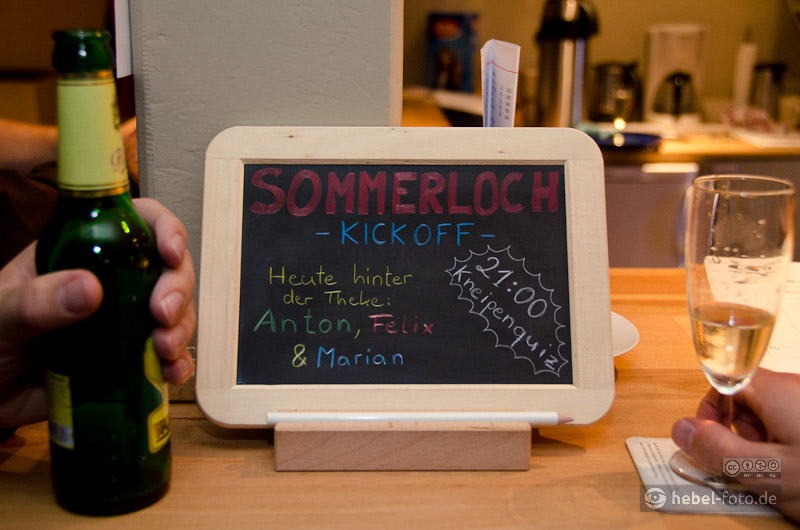 SOMMERLOCH
- KICK OFF -
Heute hinter
der Theke:
Anton, Felix
& Marian
21:00
Kneipenquiz
hebel-foto.de